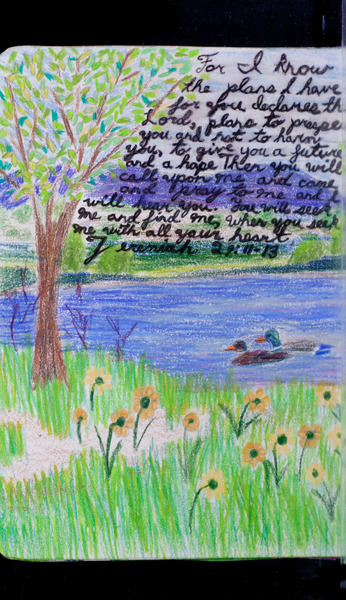 For I know
the plans I have
for you declares th
Lord, plans to prospe
you and not to harm
you, to give you a future
and a hope Then you will
call upon me and come
and pray to me and I
will hear you. You will seek
me and find me, when you seek
me with all your heart
Jeremiah 29:11-13